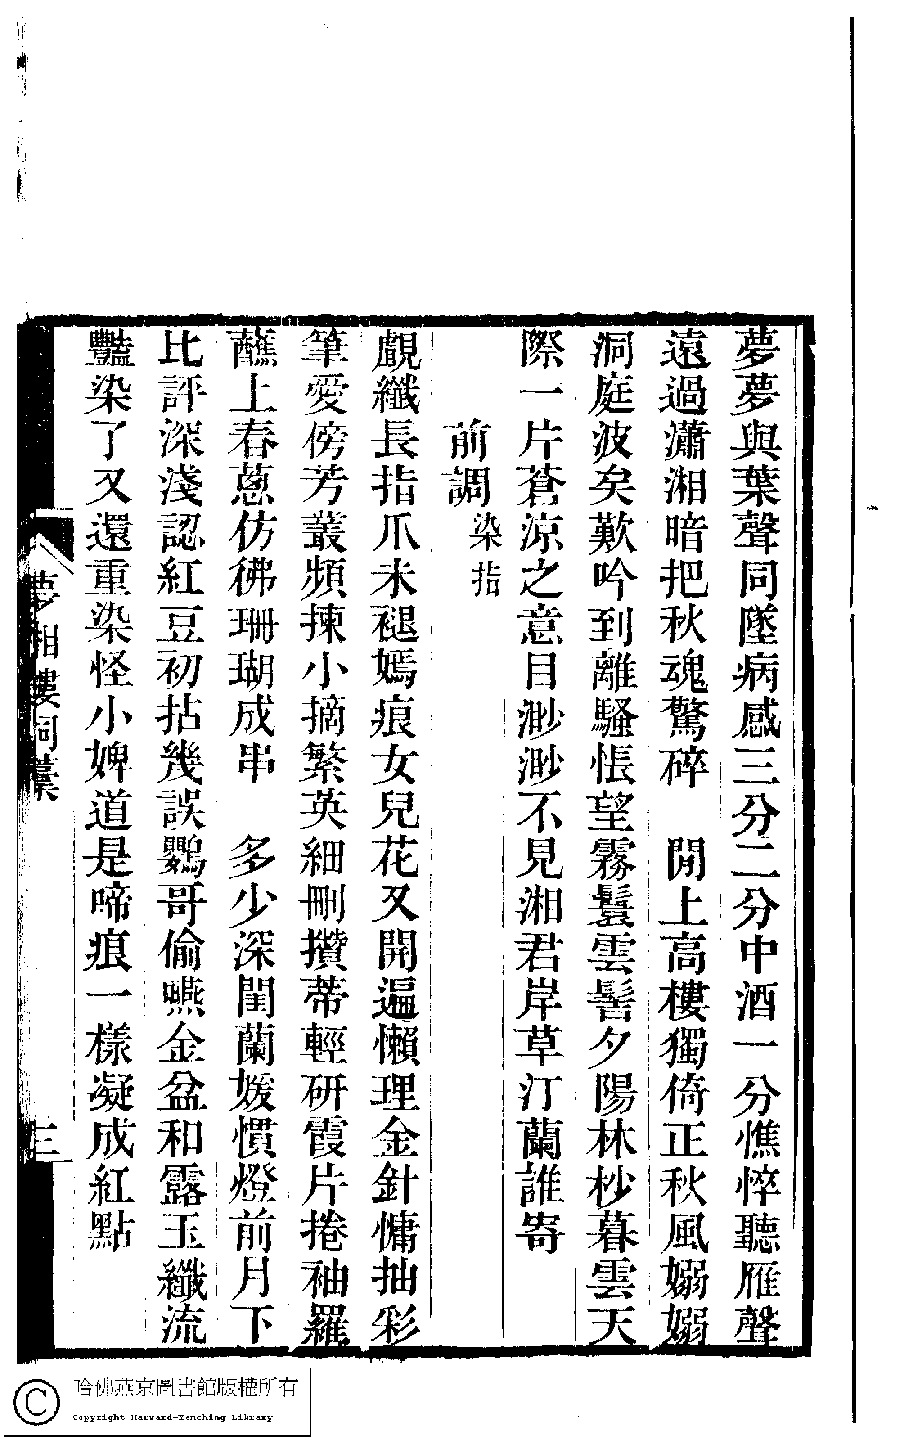 夢夢與葉聲同墜病感三分二分中酒一分憔悴聽雁聲
遠過瀟湘暗把秋魂驚碎　閒上高樓獨倚正秋風嫋嫋
洞庭波矣歎吟到離騷悵望霧鬟雲髻夕陽林杪暮雲天
際一片蒼涼之意目渺渺不見湘君岸草汀蘭誰寄
前調 染指
覷纖長指爪未褪嫣痕女兒花又開遍懶理金針慵抽彩
筆愛傍芳叢頻揀小摘繁英細刪攢蒂輕研霞片捲袖羅
蘸上春蔥仿彿珊瑚成串　多少深閨蘭媛慣燈前月下
比評深淺認紅豆初拈幾誤鸚哥偷嚥金盆和露玉纖流
豔染了又還重染怪小婢道是啼痕一樣凝成紅點
夢湘樓詞藳
三
哈佛燕京圖書館版權所有
Copyright Harvard-Yenching Library